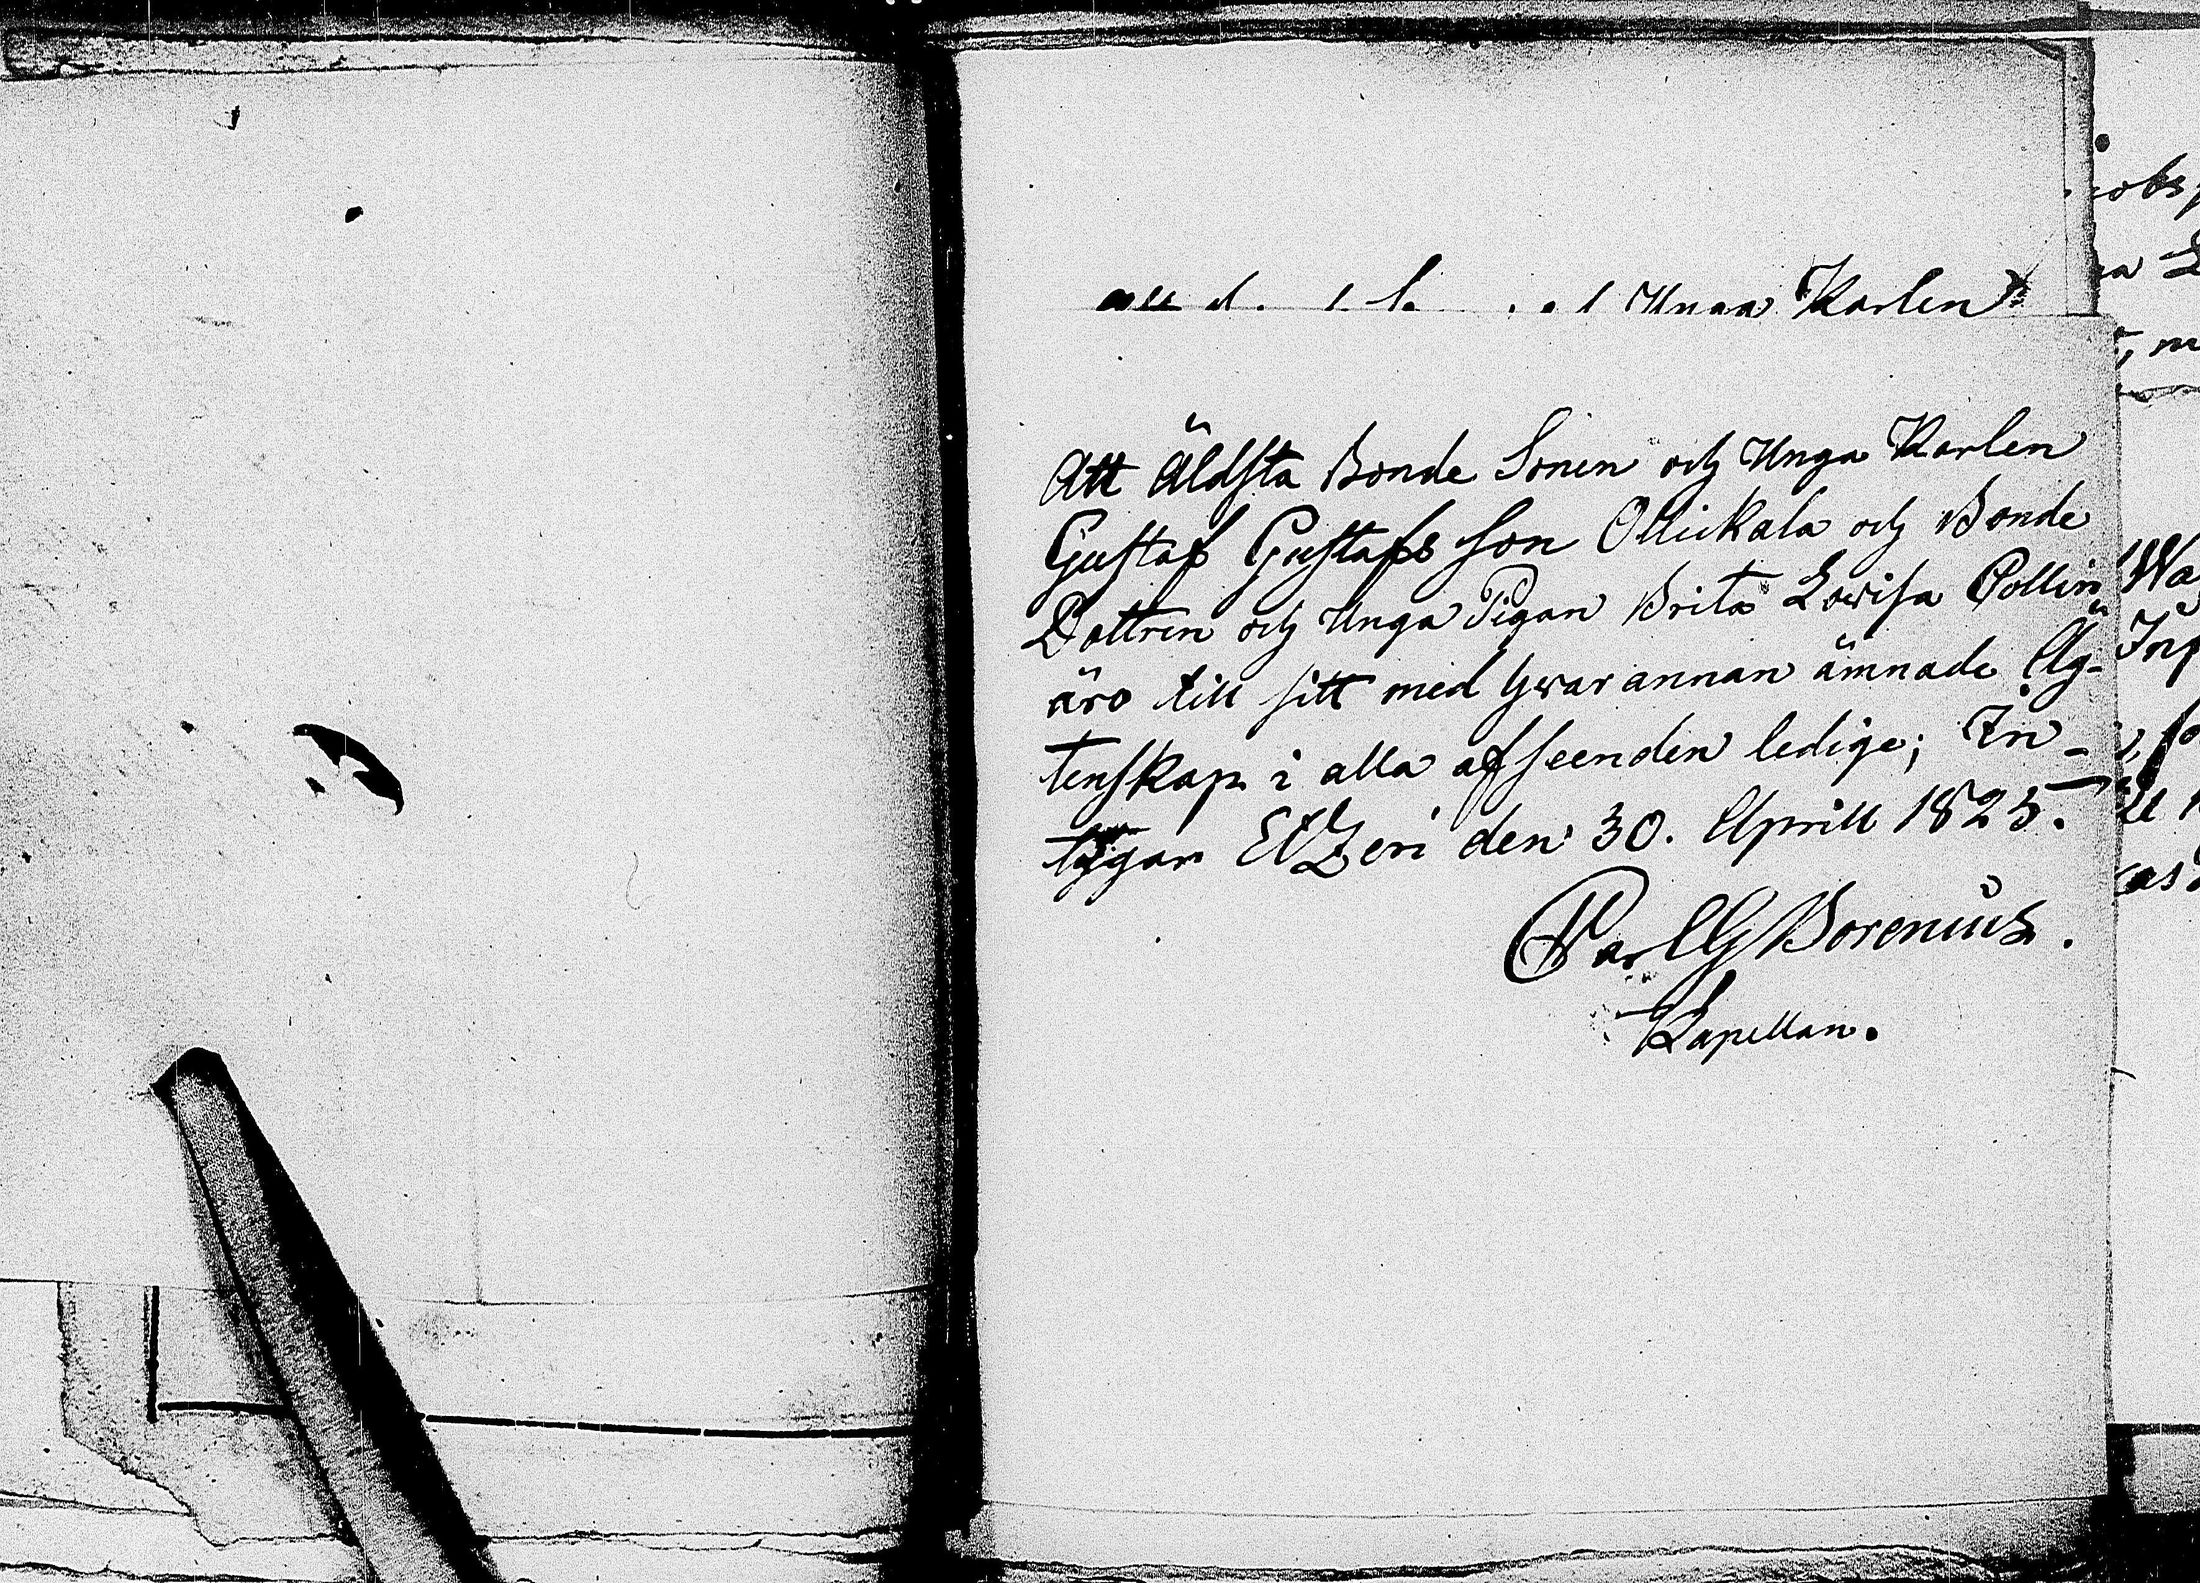 Unga Karlen
Att äldsta Bonde Sonen och Unga Karlen
Gustaf Gustafs son Ollickala och Bonde
Dottren och Unga Pigan Brita Lovisa Pollin
äro till sitt med hwarannan ämnade Äg-
tenskap i alla afseenden ledige; In-
tygar den 30. Aprill 1825.
Carl G Borenius.
Kapellan.